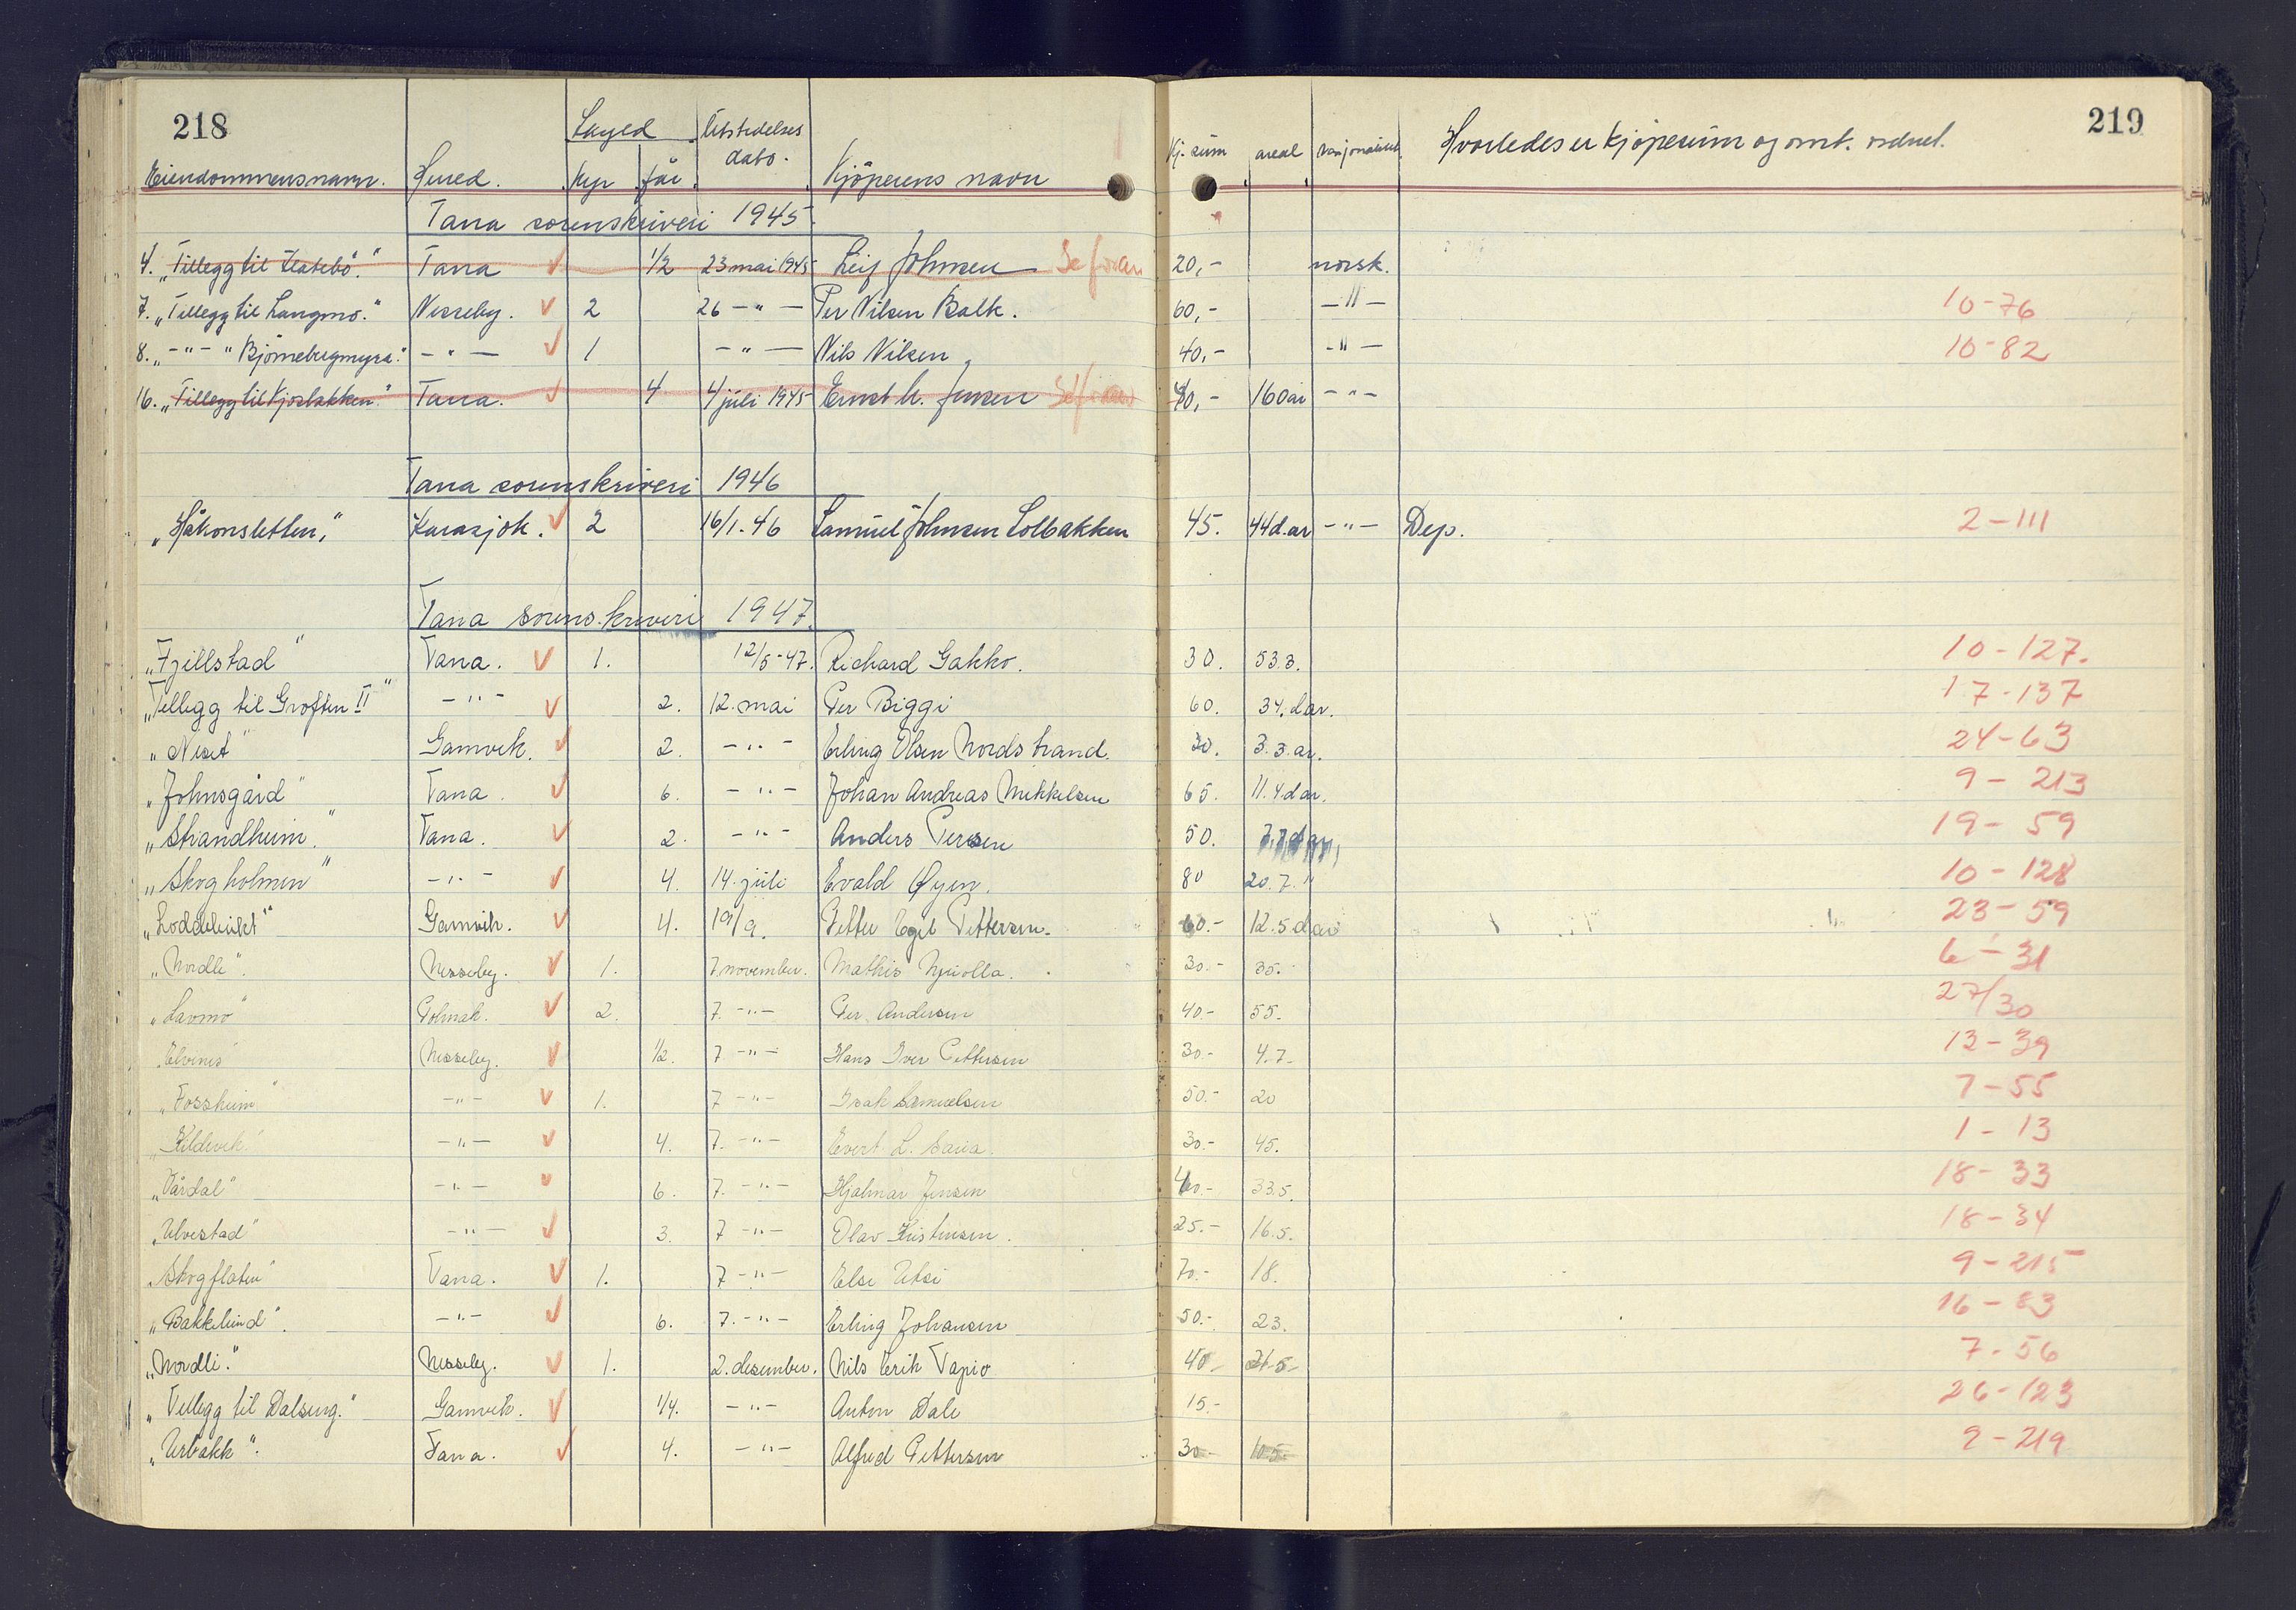 218 219
Laged Utstedelses
Eiendommensnavn. Hered. kyr får dato. Kjöperens navn Kj. sum areal nasjonalitet. Hvorledes er kjöpesum og omk. ordnet.
Tana sorenskriveri 1945.
4. „Tillegg til Flatebö." Tana ✓ 1/2 23 mai 1945 Leif Johnsen Se foran 20,- norsk.
7. „Tillegg til Langmo." Nesseby. ✓ 2 26 -"- Per Nilsen Balk. 60,- -"- 10-76
8. „-"-" Bjørnebergmyra." -"- ✓ 1 -"- Nils Nilsen. 40,- -"- 10-82
16. „Tillegg til Kjosbakken." Tana. ✓ 4 4 juli 1945 Ernst h. Jensen Se foran 40,- 160 ar -"-
Tana sorenskriveri 1946
„Håkonsletten," Karasjok. ✓ 2 16/1. 46 Samuel Johnsen Solbakken 45. 44 d.ar -"- Dep. 2-111
Tana sorenskriveri 1947.
„Fjillstad" Tana. ✓ 1. 12/5-47. Richard Gakko. 30. 53.3. 10-127.
„Tillegg til Groften II" -"- ✓ 2. 12. mai Per Biggi 60. 34. dar. 17-137
„Neset" Gamvik. ✓ 2. -"- Erling Olsen Nordstrand. 30. 3.3. ar. 24-63
„Johnsgård" Tana. ✓ 6. -"- Johan Andreas Mikkelsen 65. 11.4 dar. 9-213
„Strandheim." Tana. ✓ 2. -"- Anders Persen 50. 19-59
„Skogholmen" -"- ✓ 4. 14. juli Evald Øyen. 80 20.7. " 10-128
Gamvik. ✓ 4. 19/9. Petter Egil Pettersen. 60.- 12.5 dar 23-59
„Nordli". Nesseby. ✓ 1. 7. november. Mathis Njuolla. 30.- 35. 6-31
„Lavmo" Polmak. ✓ 2. 7. -"- Per Andersen 40.- 55. 27/30
„Elvenes" Nesseby. ✓ 1/2. 7 -"- Hans Iver Pettersen 30.- 4.7. 13-39
„Fossheim" -"- ✓ 1. 7 -"- Isak Samuelsen 50.- 20 7-55
„Kildevik" -"- ✓ 4. 7. -"- Evert L. Saria. 30.- 45. 1-13
„Vårdal" -"- ✓ 6. 7. -"- Hjalmar Jensen 40.- 33.5. 18-33
„Ulvestad" -"- ✓ 3. 7 -"- Olav Kristensen. 25.- 16.5. 18-34
„Skogflaten" Tana. ✓ 1. 7 -"- Else Utsi 70.- 18. 9-215
„Bakkelund". -"- ✓ 6. 7. -"- Erling Johansen 50.- 23. 16-83
„Nordli." Nesseby. ✓ 1. 2. desember. Nils Erik Tapio 40- 21.5- 7-56
„Tillegg til Dalseng." Gamvik. ✓ 1/4. -"- Anton Dale 15.- 26-123
„Urbakk". Tana. ✓ 4. -"- Alfred Pettersen 30- 10.5. 9-219